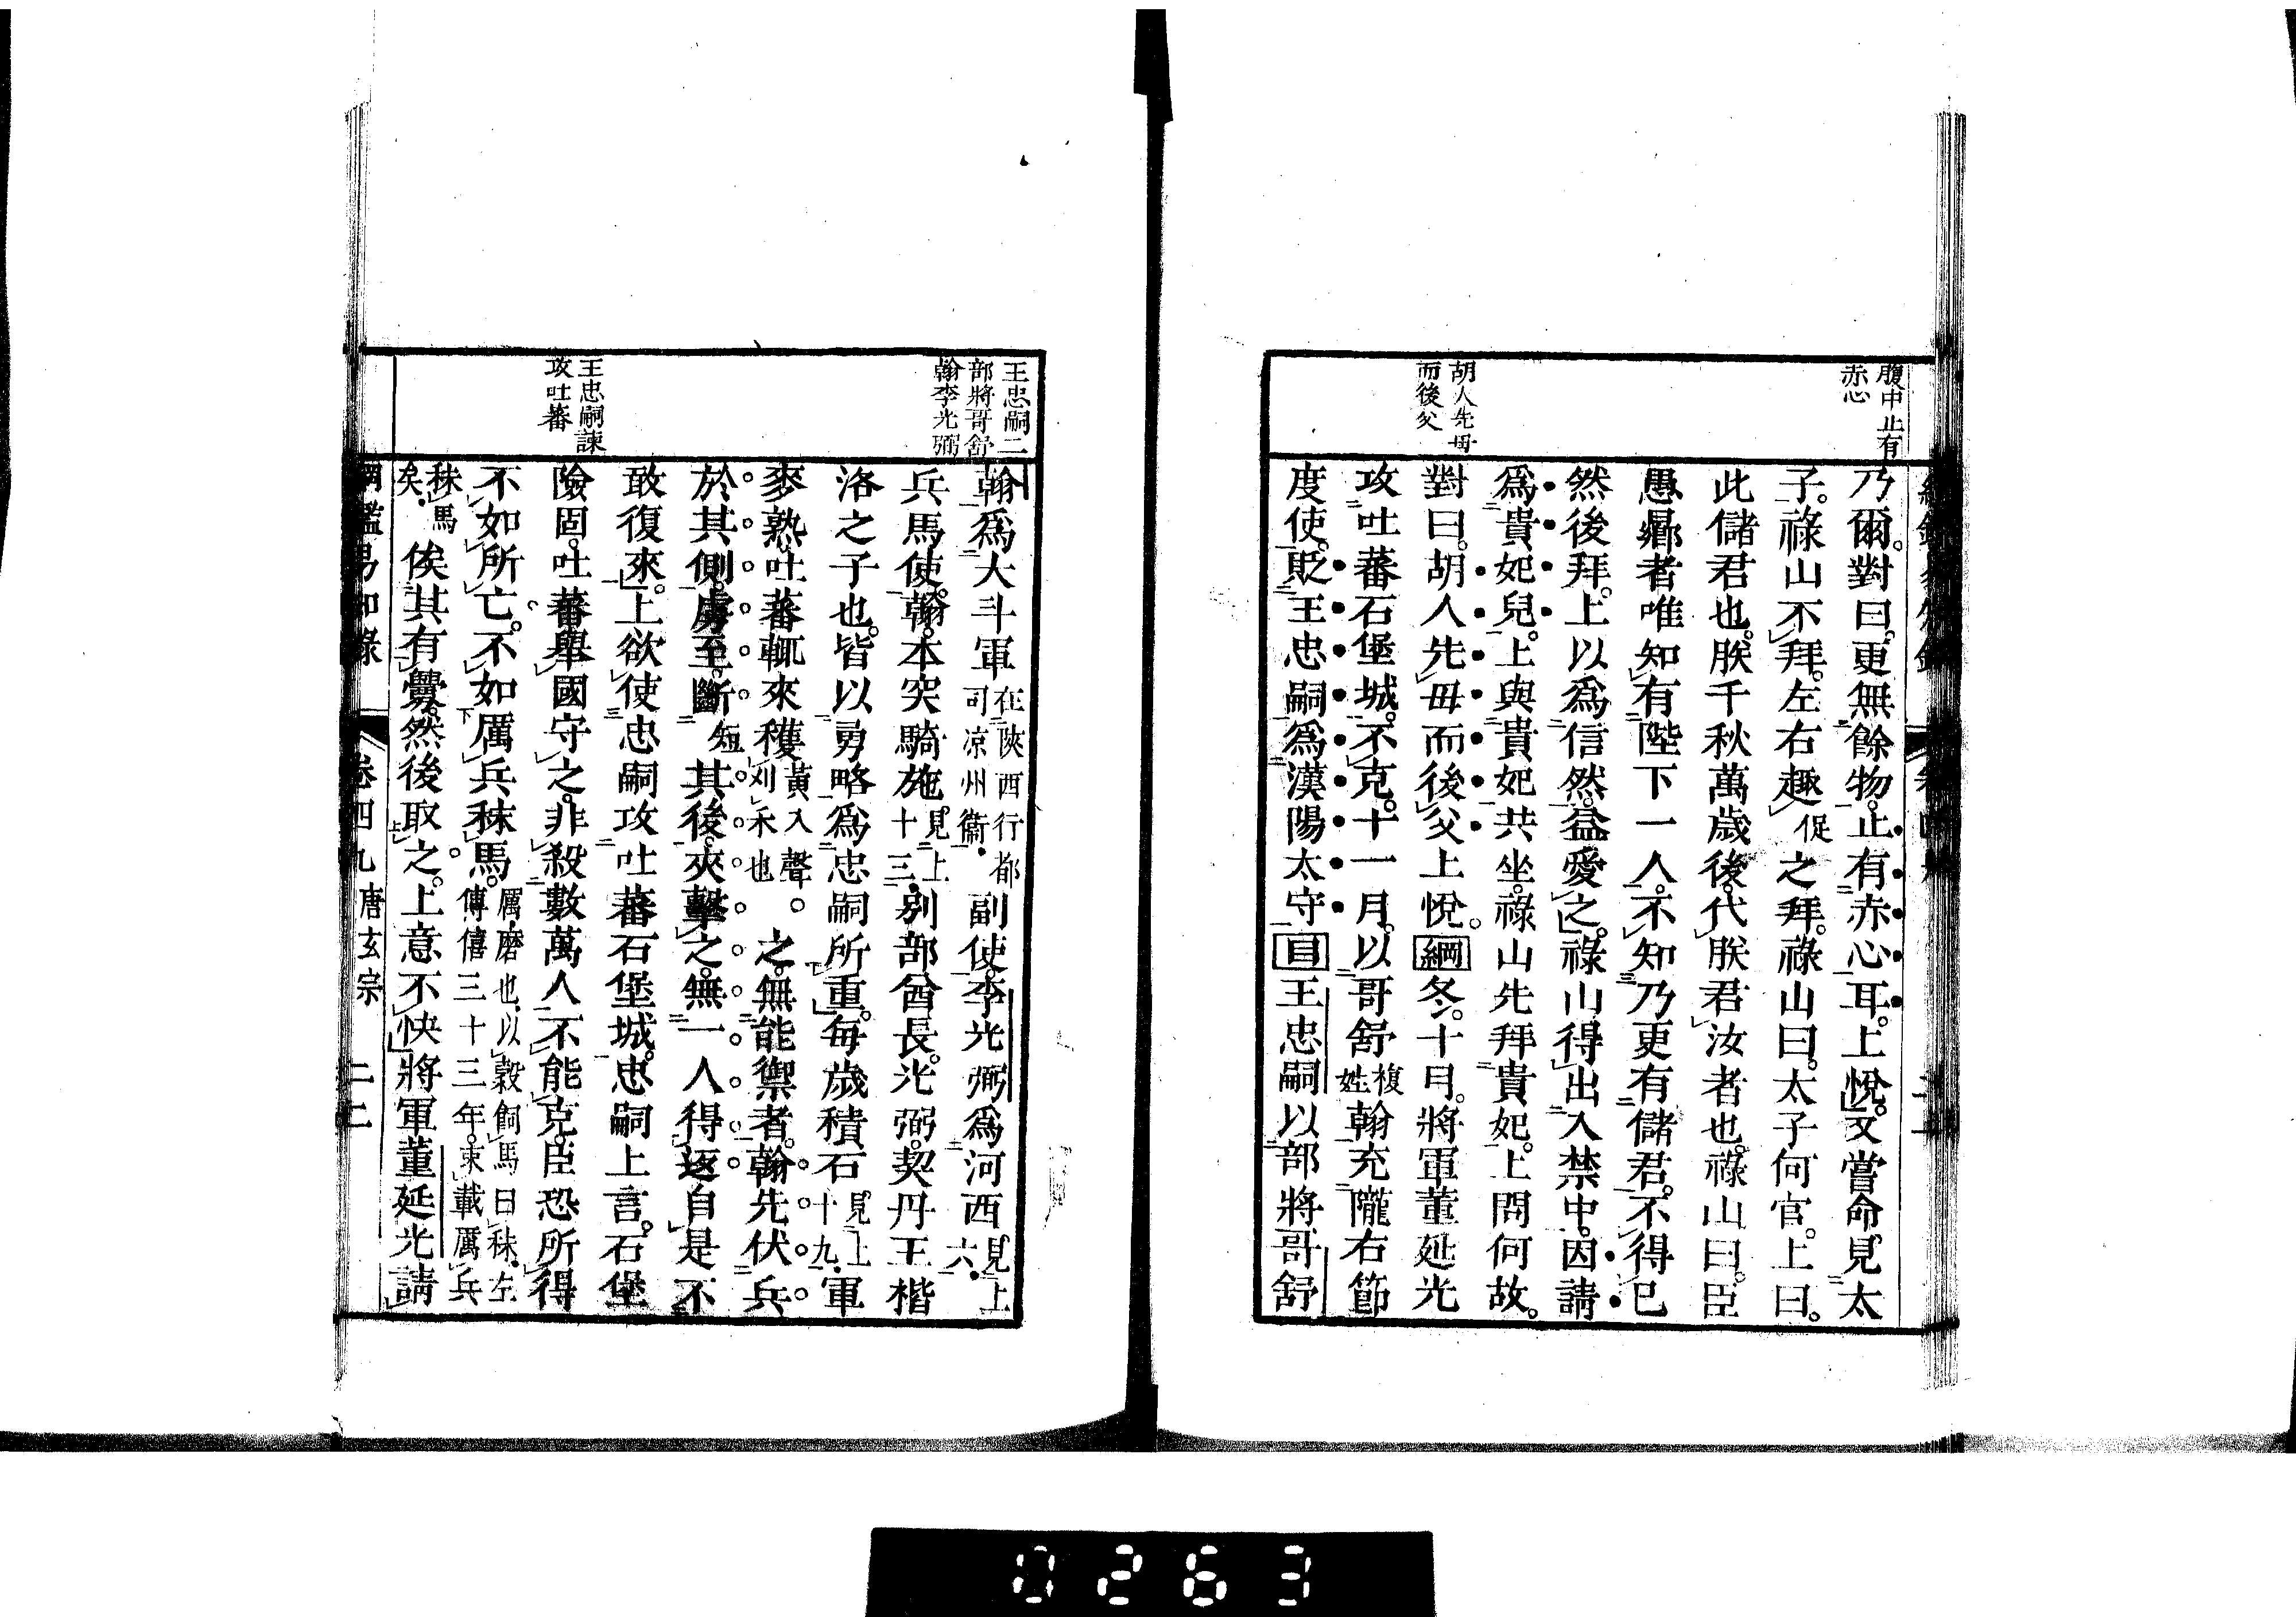 腹中止有
赤心
胡人先母
而後父
乃爾。對曰。更無餘物。止有赤心耳。上悅。又嘗命見太
子。祿山不拜。左右趣促之拜。祿山曰。太子何官。上曰。
此儲君也。朕千秋萬歲後。代朕君汝者也。祿山曰。臣
愚曏者唯知有陛下一人。不知乃更有儲君。不得已
然後拜。上以爲信然。益愛之。祿山得出入禁中。因請
爲貴妃兒。上與貴妃共坐。祿山先拜貴妃。上問何故。
對曰。胡人先母而後父。上悅。綱冬。十月。將軍董延光
攻吐蕃石堡城。不克。十一月。以哥舒複姓翰充隴右節
度使。貶王忠嗣爲漢陽太守。目王忠嗣以部將哥舒
王忠嗣二
部將哥舒
翰李光弼
王忠嗣諫
攻吐蕃
翰爲大斗軍在陝西行都司凉州衞副使。李光弼爲河西見上六
兵馬使。翰。本突騎施見上十三別部酋長。光弼。契丹王楷
洛之子也。皆以勇略爲忠嗣所重。每歲積石見上十九軍
麥熟。吐蕃輒來穫黃入聲刈禾也之。無能禦者。翰先伏兵
於其側。虜至。斷短其後。夾擊之。無一人得返。自是不
敢復來。上欲使忠嗣攻吐蕃石堡城。忠嗣上言。石堡
險固。吐蕃舉國守之。非殺數萬人不能克。臣恐所得
不如所亡。不如厲兵秣馬。厲磨也以穀飼馬曰秣左傳僖三十三年束載厲兵
秣馬矣俟其有釁。然後取之。上意不快。將軍董延光請
綱鑑易知錄 卷四九 唐玄宗 二二
0263